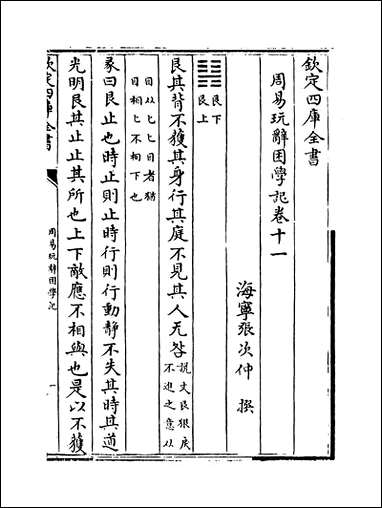 欽定四庫全書
周易玩辭困學記卷十一
海寧張次仲 撰
艮下
艮上
艮其背不獲其身行其庭不見其人无咎說文艮狠戾
不進之意从
目从匕匕目者猶
目相匕不相下也
彖曰艮止也時止則止時行則行動靜不失其時其道
光明艮其止止其所也上下敵應不相與也是以不獲
欽定四庫全書
周易玩辭困學記
一